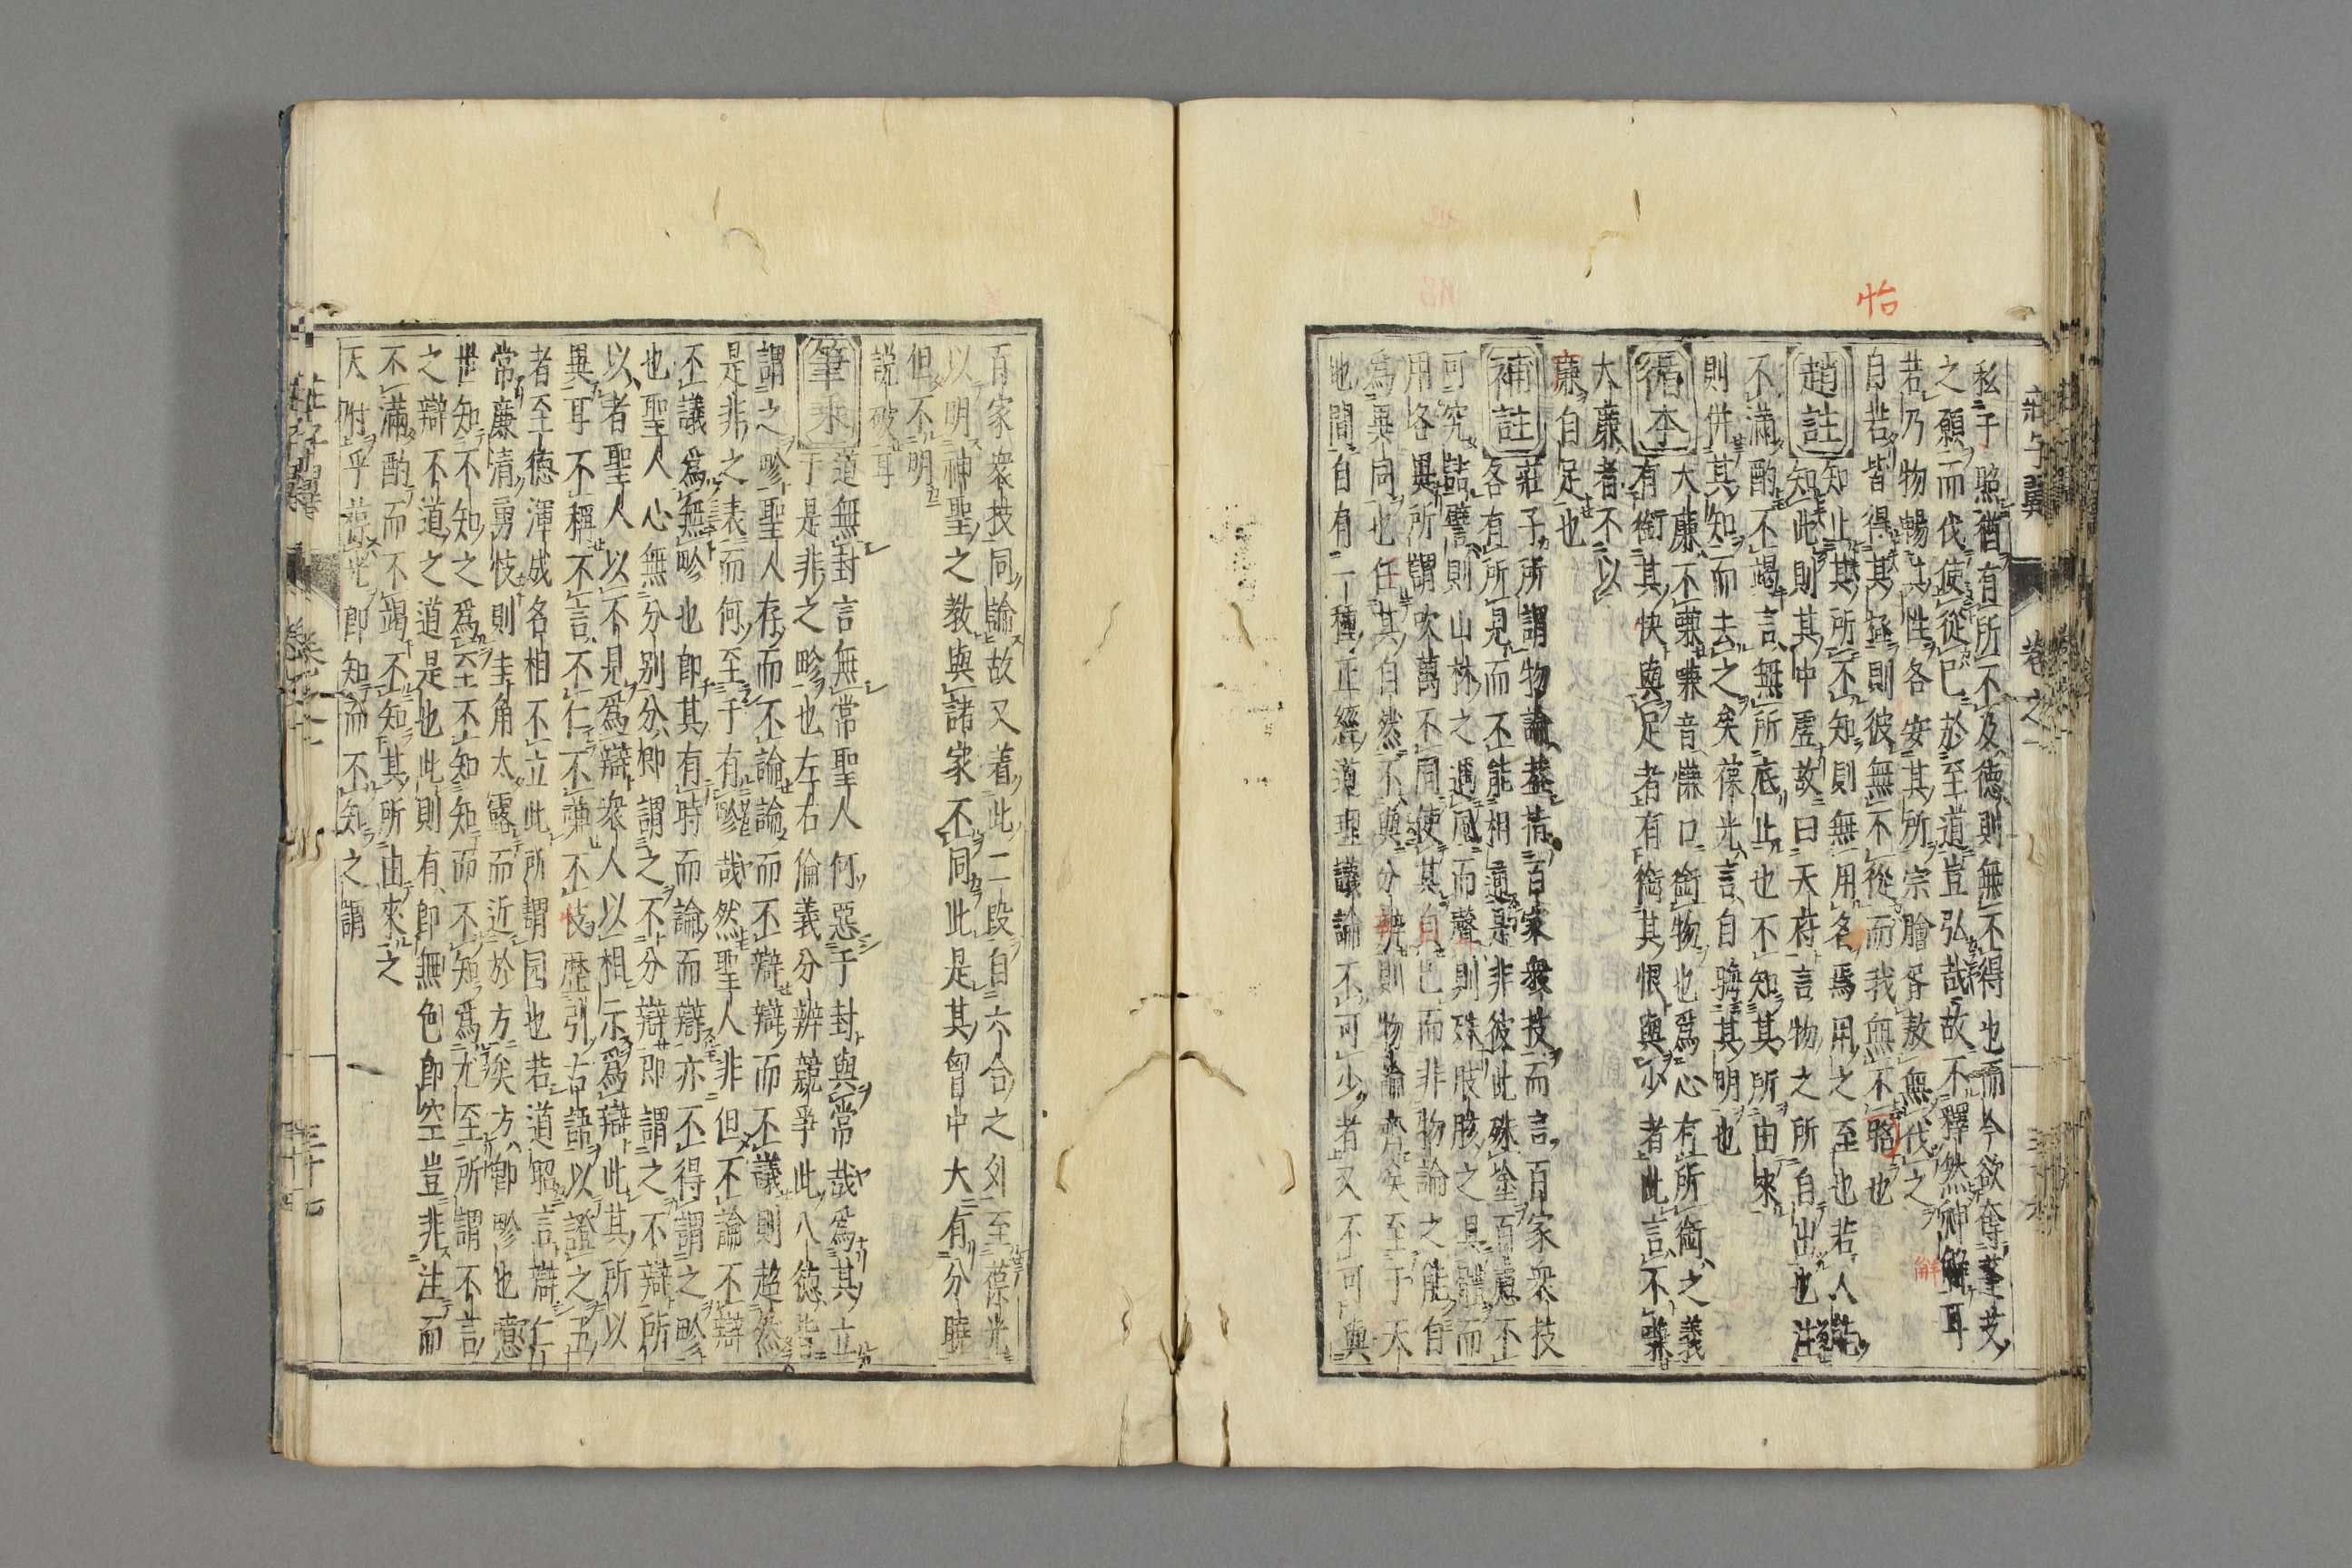 怡
私于照猶有所不及德則無不得也而今欲奪蓬艾
之願而伐使從己於至道豈弘哉故不釋然神解耳
若乃物暢其性各安其所宗膾胥敖無伐之
自若皆得其極則彼無不從而我無不
也
解
趙註
知止其所不知則無用名焉用之至也若人
知此則其中虛故曰天府言物之所自出也注
不滿酌不竭言無所底止也不知其所由來
則併其知而去之矣葆光言自韜其明也
循本
大廉不嗛嗛音慊口銜物也為心有所銜之義
有銜其快與足者有銜其恨與少者此言不嗛
大廉者不以
廉自足也
補註
莊子所謂物論蓋指百家衆技而言百家衆技
各有所見而不能相通是非彼此殊塗百慮不
可究詰譬則山林之遇風而聲則殊肢骸之具體而
用各異所謂吹萬不同使其自己而非物論之能自
為異同也任其自然不與分辨則物論齊矣至于天
地間自有一種正經道理議論不可少者又不可與
莊子翼
卷之一
百家衆技同論故又着此二段自六合之外至葆光
以明神聖之教與諸家不同此是其胷中大有分曉
但不明
説破耳
筆乘
道無封言無常聖人何惡于封與常哉爲其立
于是非之畛也左右倫義分辨競爭此八德皆
謂之畛聖人存而不論論而不辯辯而不議則超然
是非之表而何至于有畛哉然聖人非但不論不辯
不議爲無畛也卽其有時而論而辯亦不得謂之畛
也聖人心無分别分卽謂之不分辯卽謂之不辯所
以者聖人以不見爲辯衆人以相示爲辯此其所以
異耳不稱不言不仁不嗛不忮歷引古語以證之五
者至德渾成名相不立此所謂园也若道昭言辯仁
常廉清勇忮則圭角太露而近於方矣方卽畛也意
世知不知之爲至不知知而不知爲尤至所謂不言
之辯不道之道是也此則有卽無色卽空豈非注而
不滿酌而不竭不知其所由來之
天府乎葆光卽知而不知之謂
莊子翼
三十七